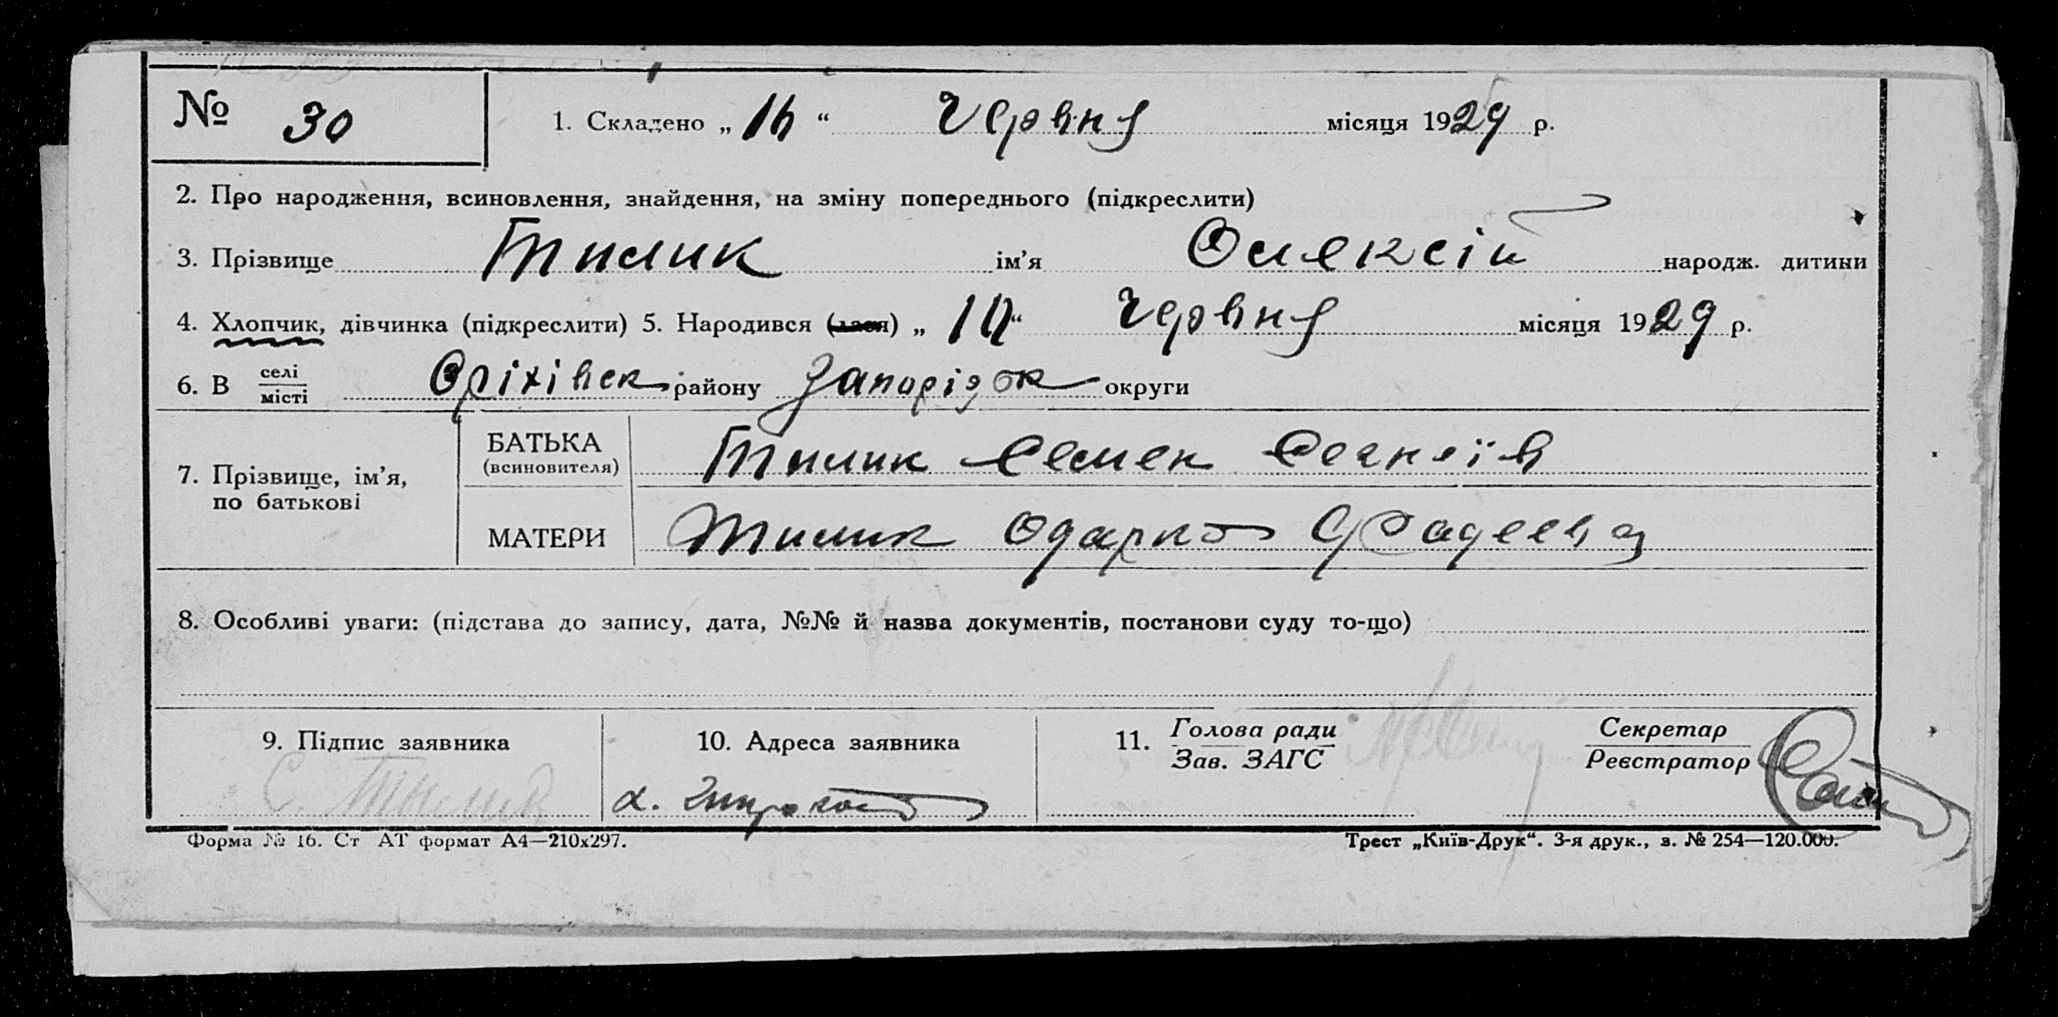 № 30 1. Складено „ 16 “ Червня місяця 1929 р.
2. Про народження, всиновлення, знайдення, на зміну попереднього (підкреслити)
3. Прізвище Тилик ім’я Олексій народж. дитини
4. Хлопчик, дівчинка (підкреслити) 5. Народився (лася) „ “ Червня місяця 1929 р.
6. В селі
місті Оріхівск району Запорізьк округи
7. Прізвище, ім’я,
по батькові
БАТЬКА
(всиновителя) Тилик Семен
МАТЕРИ Тилик Одарка Фадеевна
8. Особливі уваги: (підстава до запису, дата, №№ й назва документів, постанови суду то-що)
9. Підпис заявника
С. Тылик
10. Адреса заявника
11. Голова ради
Зав. ЗАГС
Секретар
Реєстратор
Форма № 16. Ст АТ формат А4—210х297. Трест „Київ-Друк“. 3-я друк., з. № 254—120.000.